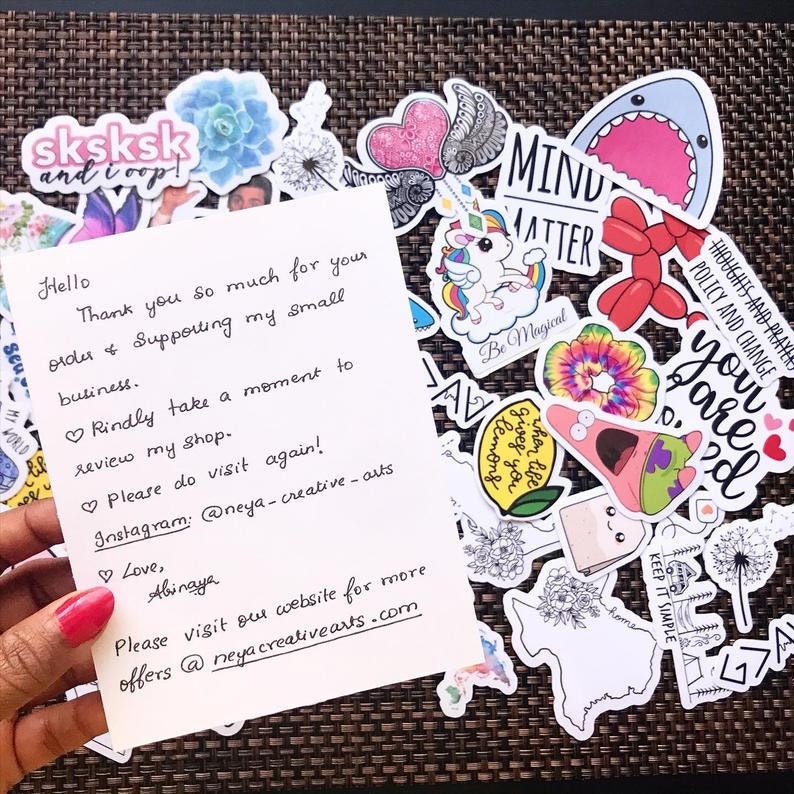 sksksk
and i oop!
MIND
MATTER
THOUGHTS AND PRAYERS
POLICY AND CHANGE
Be Magical
you
are
when life
gives you
lemons
KEEP IT SIMPLE
home
G>
MY WORLD
Hello
Thank you so much for your
order & Supporting my small
business.
♡ Kindly take a moment to
review my shop.
♡ Please do visit again!
Instagram: @neya_creative_arts
♡ Love,
Abinaya
Please visit our website for more
offers @ neyacreativearts.com